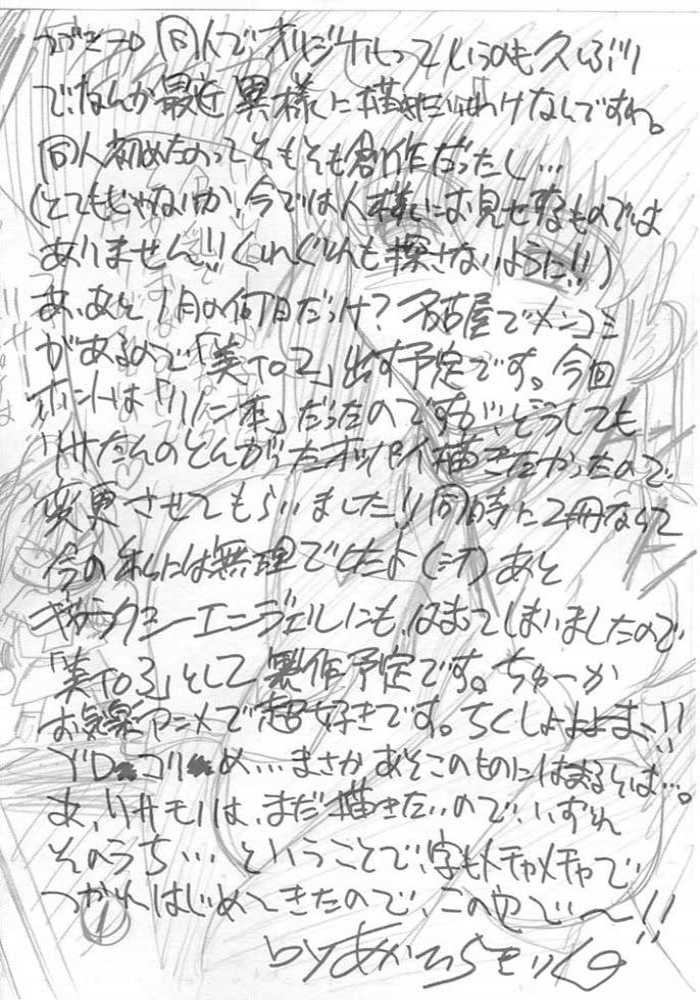 つづき→ 同人でオリジナルっていうのも久しぶり
で、なんか最近異様に描きたいわけなんですね。
同人初めたのってそもそも創作だったし…
(とてもじゃないが、今では人様にお見せするものでは
ありません!!くれぐれも探さないように!!)
あ、あと1月の何日だっけ?名古屋でメンコミ
があるので「美to2」出す予定です。今回
ホントは「リノン本」だったのですが、どうしても
リサたんのとんがったオッパイ描きたかったので
変更させてもらいました!!同時に2冊なんて
今の私には無理でしたよ(汗)あと
ギャラクシーエンジェルにも、はまってしまいましたので
「美to3」として製作予定です。ちゅーか
お気楽アニメで超好きです。ちくしょおおお、!!
め…まさかあそこのものにはまるとは…。
あ、リサモノは、まだ描きたいので、いずれ
そのうち…ということで、字もメチャメチャで
つかれはじめてきたので、この辺で〜!!
by